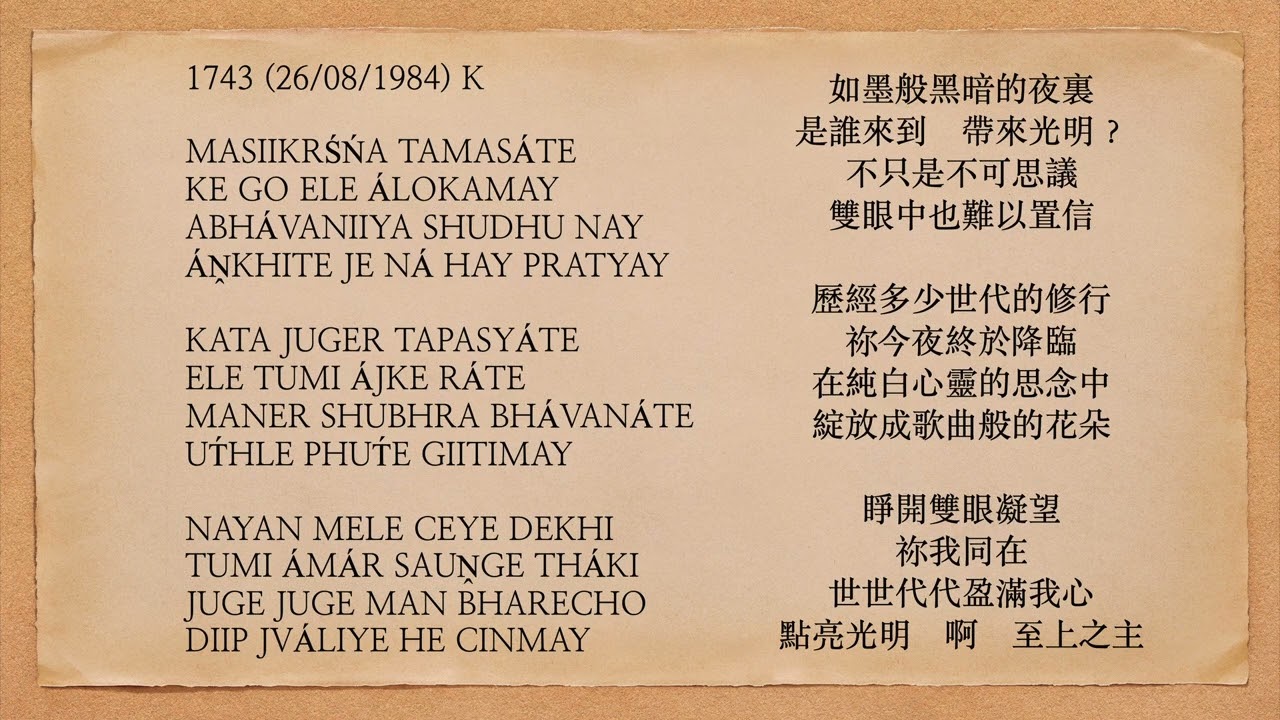 1743 (26/08/1984) K
MASIIKRŚŃA TAMASÁTE
KE GO ELE ÁLOKAMAY
ABHÁVANIIYA SHUDHU NAY
ÁṊKHITE JE NÁ HAY PRATYAY
KATA JUGER TAPASYÁTE
ELE TUMI ÁJKE RÁTE
MANER SHUBHRA BHÁVANÁTE
UT́HLE PHUT́E GIITIMAY
NAYAN MELE CEYE DEKHI
TUMI ÁMÁR SAUṊGE THÁKI
JUGE JUGE MAN BHARECHO
DIIP JVÁLIYE HE CINMAY
如墨般黑暗的夜裏
是誰來到　帶來光明？
不只是不可思議
雙眼中也難以置信
歷經多少世代的修行
祢今夜終於降臨
在純白心靈的思念中
綻放成歌曲般的花朵
睜開雙眼凝望
祢我同在
世世代代盈滿我心
點亮光明　啊　至上之主